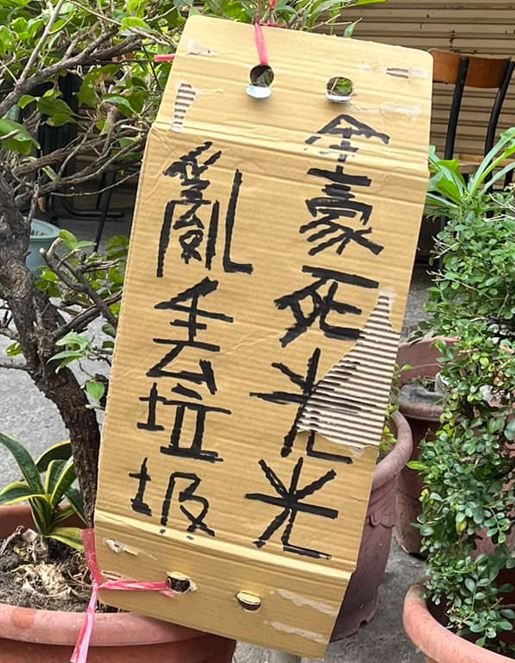 亂丟垃圾
全豪死光光